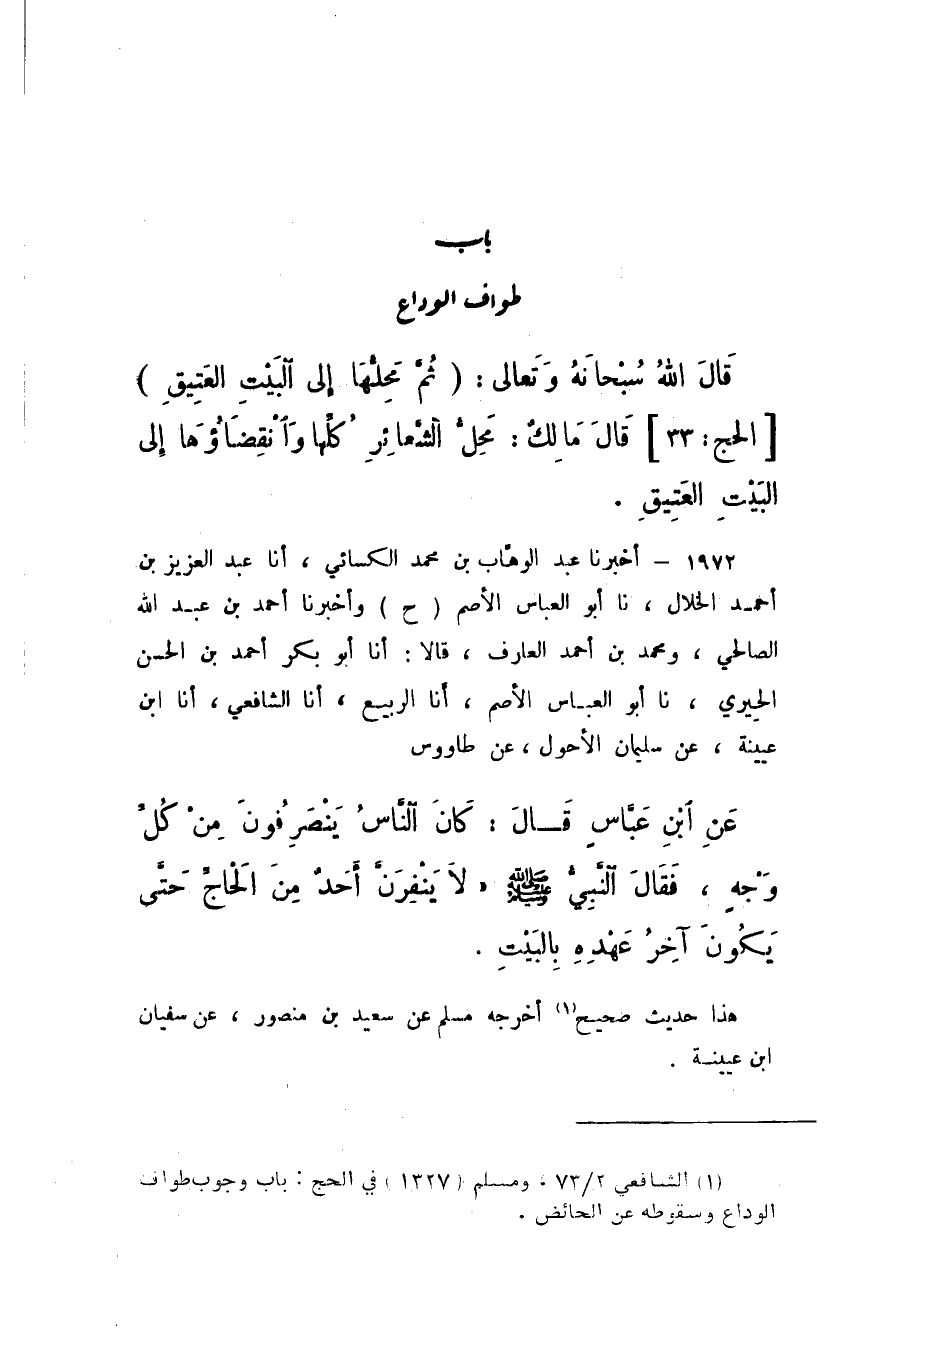 باب
طواف الوداع
قَالَ اللهُ سُبْحانَهُ وَتَعالى : ( ثُمَّ مَحِلُّهَا إلى ٱلبَيْتِ العَتِيقِ )
[ الحج : ٣٣ ] قَالَ مَالِكٌ : مَحِلُّ الشَّعائِرِ كُلِّها وَٱنْقِضَاؤُهَا إلى
البَيْتِ العَتِيقِ .
١٩٧٢ – أخبرنا عبد الوهّاب بن محمد الكسائي ، أنا عبد العزيز بن
أحمـد الخلال ، نا أبو العباس الأصم ( ح ) وأخبرنا أحمد بن عبـد الله
الصالحي ، ومحمد بن أحمد العارف ، قالا : أنا أبو بكر أحمد بن الحسن
الحيري ، نا أبو العبـاس الأصم ، أنا الربيـع ، أنا الشافعي ، أنا ابن
عيينة ، عن سليمان الأحول ، عن طاووس
عَنِ ٱبْنِ عَبَّاسٍ قَــالَ : كَانَ ٱلنَّاسُ يَنْصَرِفُونَ مِنْ كُلِّ
وَجْهٍ ، فَقَالَ ٱلنَّبِيُّ ﷺ « لاَ يَنْفِرَنَّ أَحَدٌ مِنَ الْحَاجِّ حَتَّى
يَكُونَ آخِرُ عَهْدِهِ بِالبَيْتِ .
هذا حديث صحيح(١) أخرجه مسلم عن سعيد بن منصور ، عن سفيان
ابن عيينـة .
(١) الشافعي ٧٣/٢ ، ومسلم ( ١٣٢٧ ) في الحج : باب وجوب طواف
الوداع وسقوطه عن الحائض .